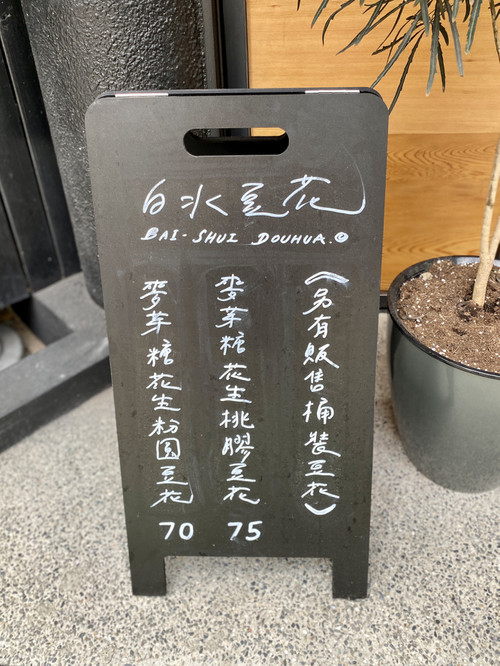 白水豆花
BAI-SHUI DOUHUA.©
(另有販售桶裝豆花)
麥芽糖花生桃膠豆花 75
麥芽糖花生粉圓豆花 70